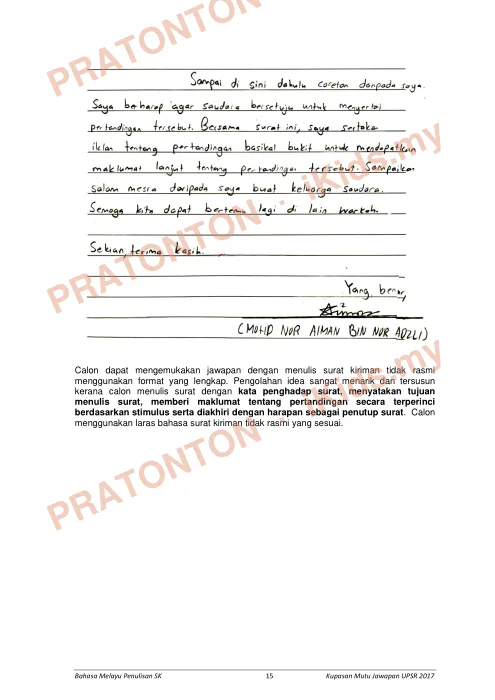 PRATONTON : iKids.my
Sampai di sini dahulu coretan daripada saya.
Saya berharap agar saudara bersetuju untuk menyertai
pertandingan tersebut. Bersama surat ini, saya sertakan
iklan tentang pertandingan basikal bukit untuk mendapatkan
maklumat lanjut tentang pertandingan tersebut. Sampaikan
salam mesra daripada saya buat keluarga saudara.
Semoga kita dapat bertemu lagi di lain warkah.
Sekian, terima kasih.
Yang benar,
(MOHD NOR AIMAN BIN NOR ADZLI)
PRATONTON : iKids.my
Calon dapat mengemukakan jawapan dengan menulis surat kiriman tidak rasmi
menggunakan format yang lengkap. Pengolahan idea sangat menarik dan tersusun
kerana calon menulis surat dengan kata penghadap surat, menyatakan tujuan
menulis surat, memberi maklumat tentang pertandingan secara terperinci
berdasarkan stimulus serta diakhiri dengan harapan sebagai penutup surat. Calon
menggunakan laras bahasa surat kiriman tidak rasmi yang sesuai.
PRATONTON : iKids.my
Bahasa Melayu Penulisan SK 15 Kupasan Mutu Jawapan UPSR 2017